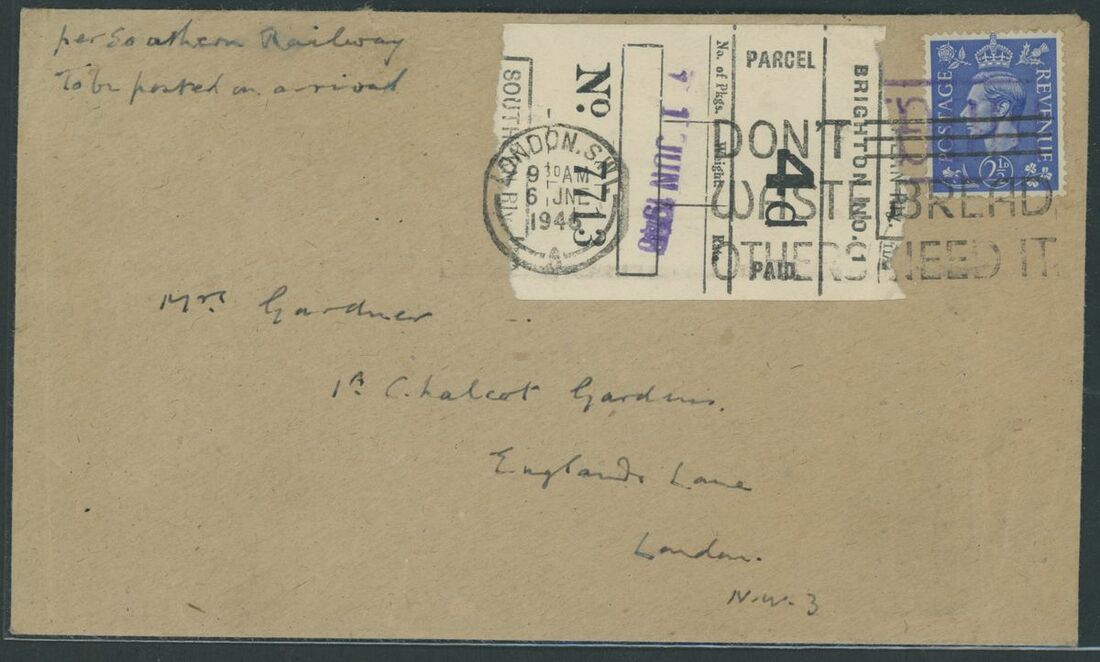 per Southern Railway
To be posted on arrival
SOUTH
Rly
No.
7713
JUN
No. of Pkgs.
Weight
PARCEL
4d
PAID.
BRIGHTON NO. (1)
POSTAGE
REVENUE
2½D
LONDON. S.W.
9 30 AM
6 JNE
1946
A
DON'T
WASTE BREAD
OTHERS NEED IT
Mrs Gardner
1A Chalcot Gardens.
Englands Lane
London.
N.W. 3